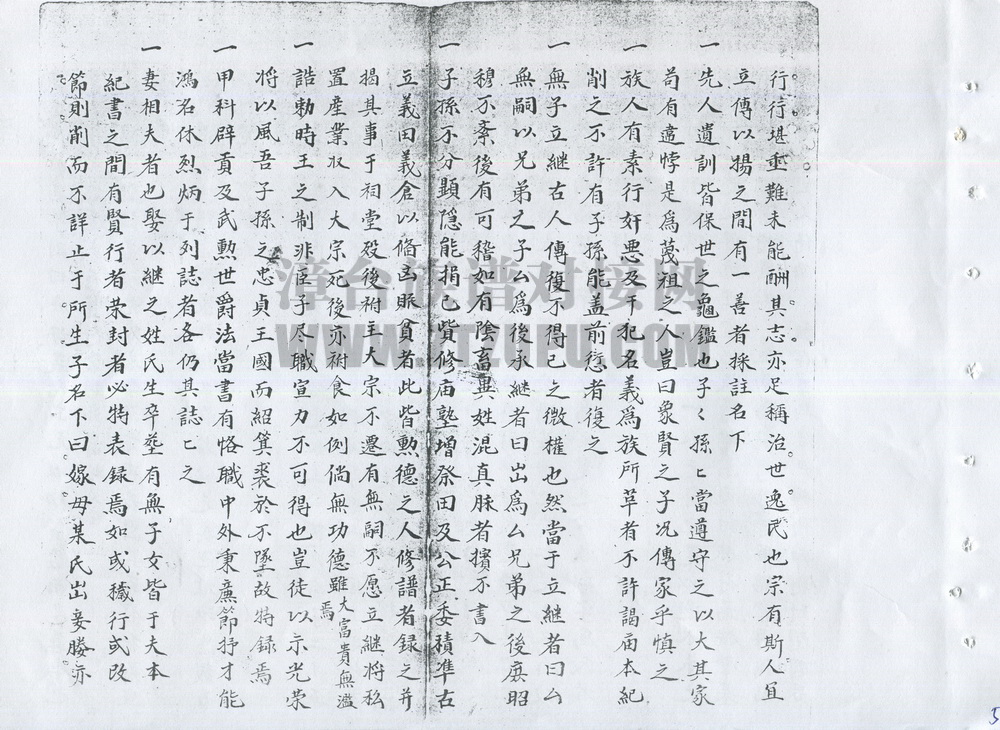 行行堪垂難未能酬其志亦足稱治世逸民也宗有斯人宜
立傳以揚之間有一善者採註名下
一先人遺訓皆保世之龜鑑也子々孫々當遵守之以大其家
苟有違悖是為蔑祖之人豈曰象賢之子况傳家乎慎之
一族人有素行奸惡及干犯名義為族所草者不許謁庙本紀
削之不許有子孫能盖前愆者復之
一無子立繼古人傳後不得已之微權也然當于立繼者曰厶
無嗣以兄弟之子厶為後承繼者曰出為厶兄弟之後庶昭
穆不紊後有可稽如有陰畜異姓混真脉者擯不書入
一子孫不分顯隐能捐己貲修庙塾增祭田及公正委積準古
立義田義倉以俻凶賑貧者此皆勲德之人修譜者録之并
揭其事于祠堂殁後祔主大宗不遷有無嗣不愿立繼将私
置産業収入大宗死後亦祔食如例倘無功德雖大富貴無濫焉
一誥勅時王之制非臣子尽職宣力不可得也豈徒以示光荣
将以風吾子孫之忠貞王國而紹箕裘於不墜故特録焉
一甲科辟貢及武勲世爵法當書有恪職中外秉廉節抒才能
鴻名休烈炳于列誌者各仍其誌々之
一妻相夫者也娶以繼之姓氏生卒塟有無子女皆于夫本
紀書之間有賢行者荣封者必特表録焉如或穢行或改
節則削而不詳止于所生子名下曰嫁母某氏出妾媵亦
漳台族谱对接网
WWW.ZTZUPU.COM
5